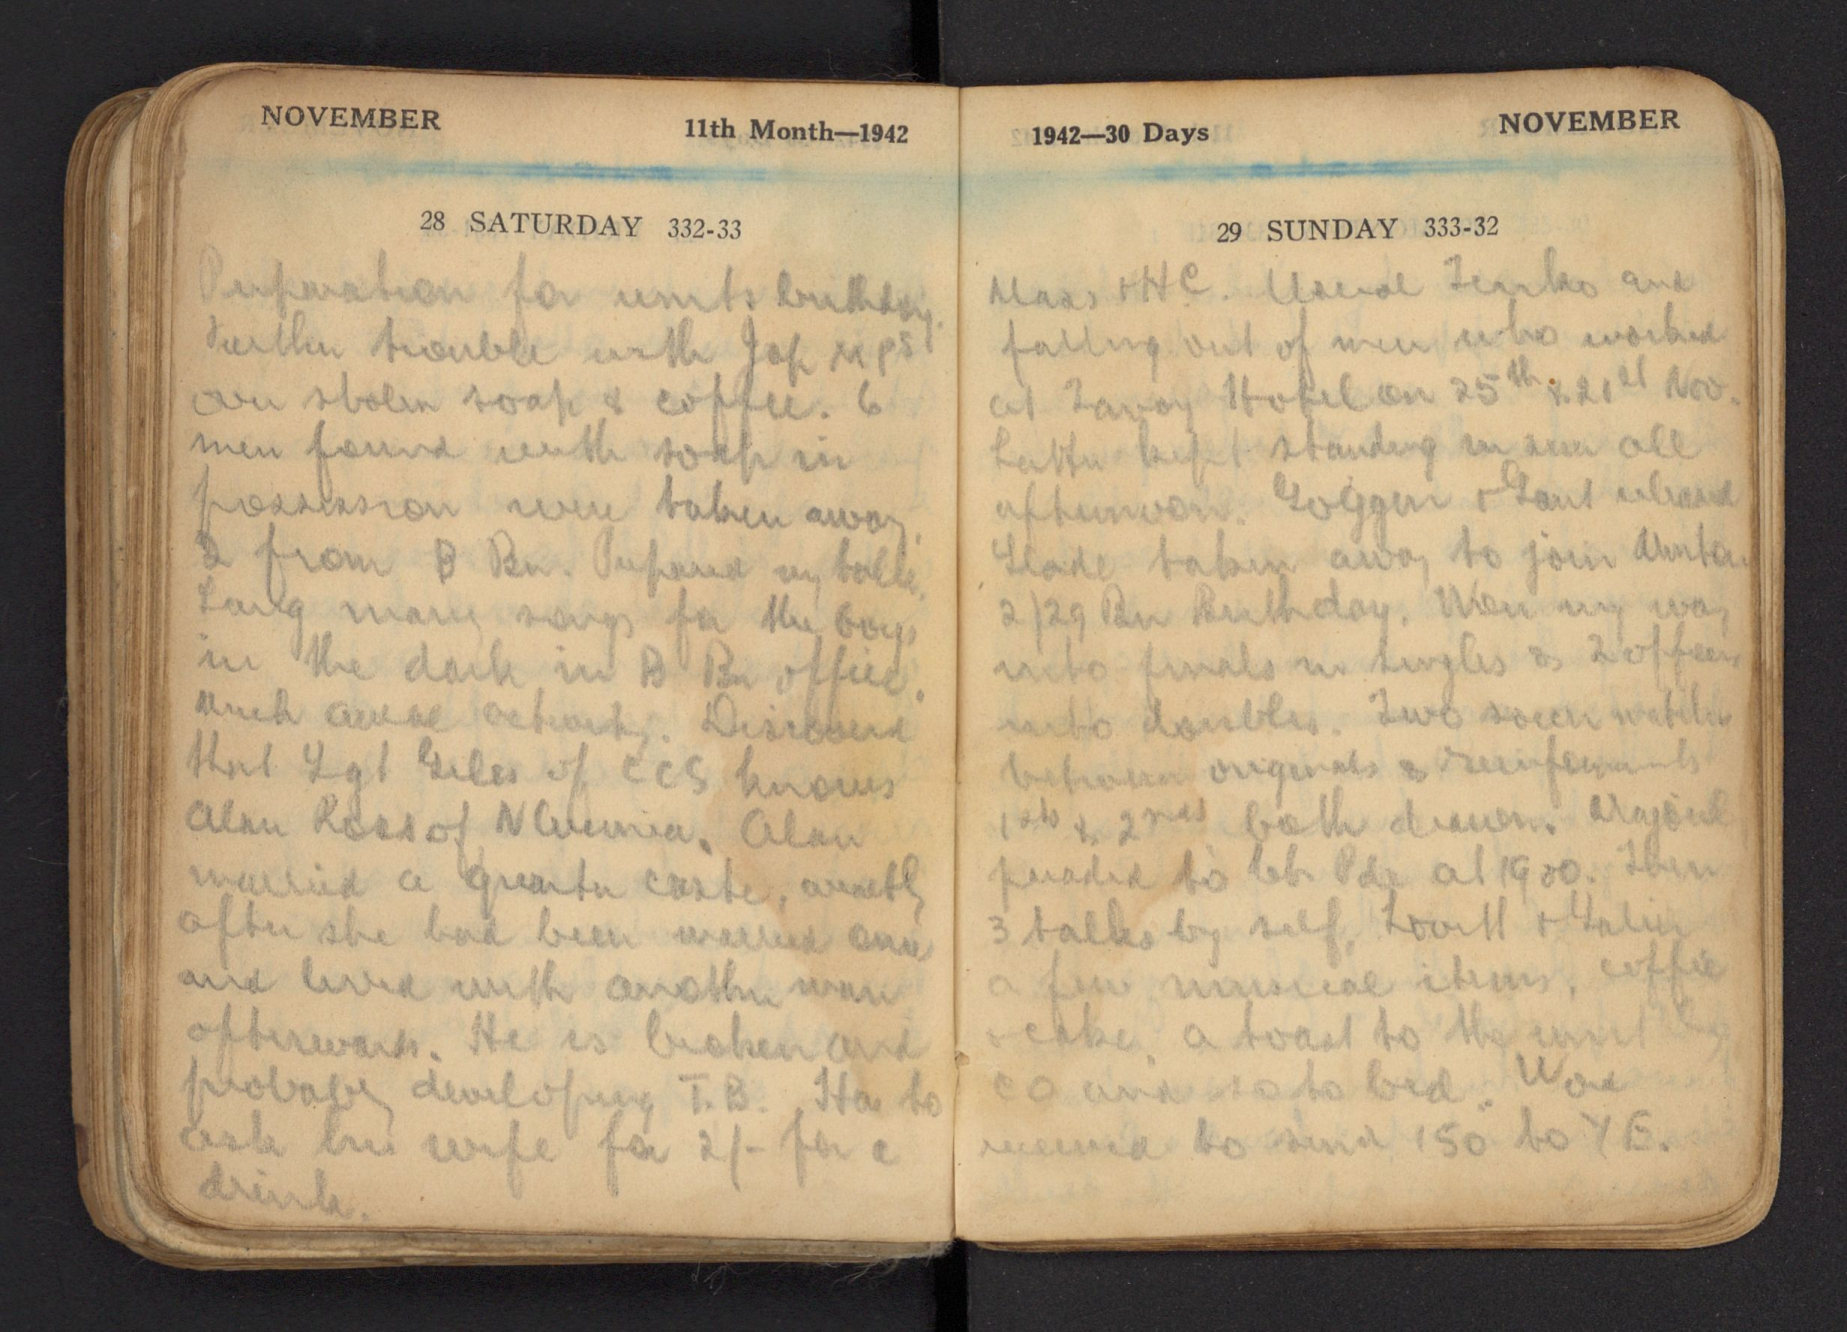 NOVEMBER
11th Month—1942
28 SATURDAY 332-33
Preparation for units birthday.
Further trouble with Jap MPs
over stolen soap & coffee. 6
men found with soap in
possession were taken away,
2 from B Bn. Prepared my talk.
Sang many songs for the boys
in the dark in B Bn office.
Much aerial activity. Discovered
that Sgt Giles of CCS knows
Alan Ross of N Guinea. Alan
married a quarter caste,
after she had been married once
and lived with another man
afterwards. He is broken and
probably developing T.B. Has to
ask his wife for 2/- for a
drink.
1942—30 Days
NOVEMBER
29 SUNDAY 333-32
Mass & H.C. Usual Tenko and
falling out of men who worked
at Tavoy Hotel on 25th & 21st Nov.
Latter kept standing in sun all
afternoon. Goggin & Gant
Slade taken away to join
2/29 Bn Birthday. Won my way
into finals in singles &
into doubles. Two soccer matches
between originals & reinforcements
1sts & 2nds both drawn.
paraded to bn Pde at 1900. Then
3 talks by self,
a few musical items, coffee
& cake, a toast to the unit by
CO and so to bed. Word
received to send 150 to YE.